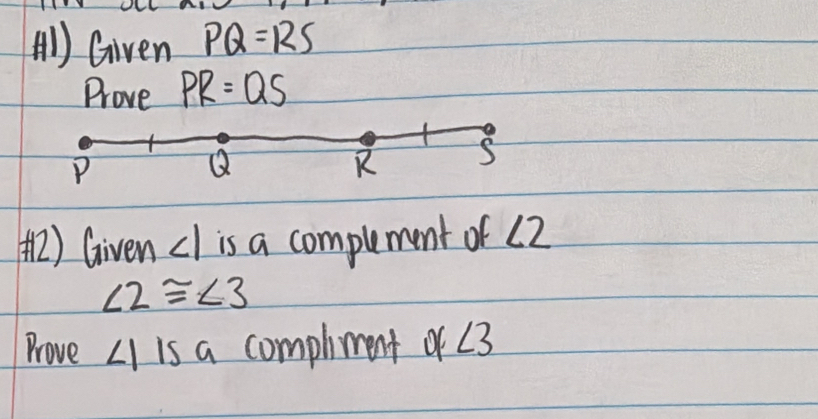 #1) Given PQ = RS
Prove PR = QS
P Q R S
#2) Given ∠1 is a complement of ∠2
∠2 ≅ ∠3
Prove ∠1 is a compliment of ∠3